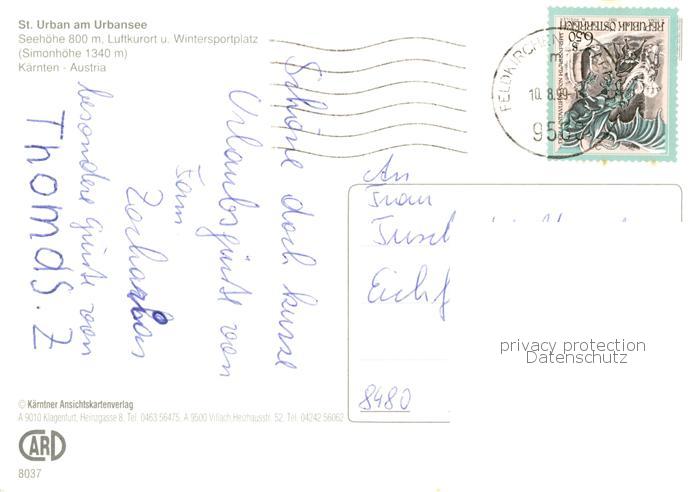 St. Urban am Urbansee
Seehöhe 800 m, Luftkurort u. Wintersportplatz
(Simonhöhe 1340 m)
Kärnten - Austria
Schöne doch kurze
Urlaubsgrüße von
Fam.
besondere Grüße von
Thomas. Z
REPUBLIK ÖSTERREICH
6,50
FELDKIRCHEN
10.8.99
An
Frau
8480
privacy protection
Datenschutz
© Kärntner Ansichtskartenverlag
A 9010 Klagenfurt, Heinzgasse 8, Tel. 0463 56475, A 9500 Villach, Heizhausstr. 52, Tel. 04242 56062
CARD
8037